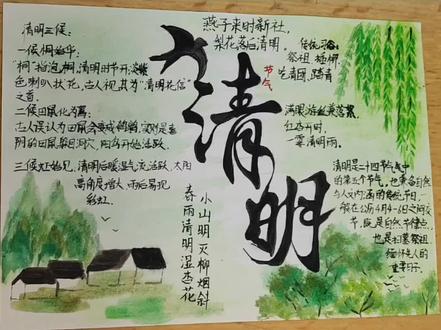 清明三候:
一候桐始华:
"桐"指泡桐,清明时节开
色喇叭状花,古人视其为"清明花信"
之首。
二候田鼠化为鴽:
古人误认为田鼠会变成鹌鹑,实则是
阴的田鼠躲回洞穴,阳鸟开始活跃
三候虹始见,清明后暖湿气流活跃,太阳
高角度增大,雨后易现
彩虹
燕子来时新社,
梨花落后清明。
传统习俗
祭祖 插柳
吃青团,踏青
节气
清明
满眼游丝兼落絮,
红杏开时,
一霎清明雨。
清明是二十四节气中
的第五个节气,也兼具自然
与人文内涵的传统节日,一
般在公历4月4-6日之间交
节,既是自然节律点,
也是扫墓祭祖
缅怀先人的
重要日子。
小山明灭柳烟斜
春雨清明湿杏花